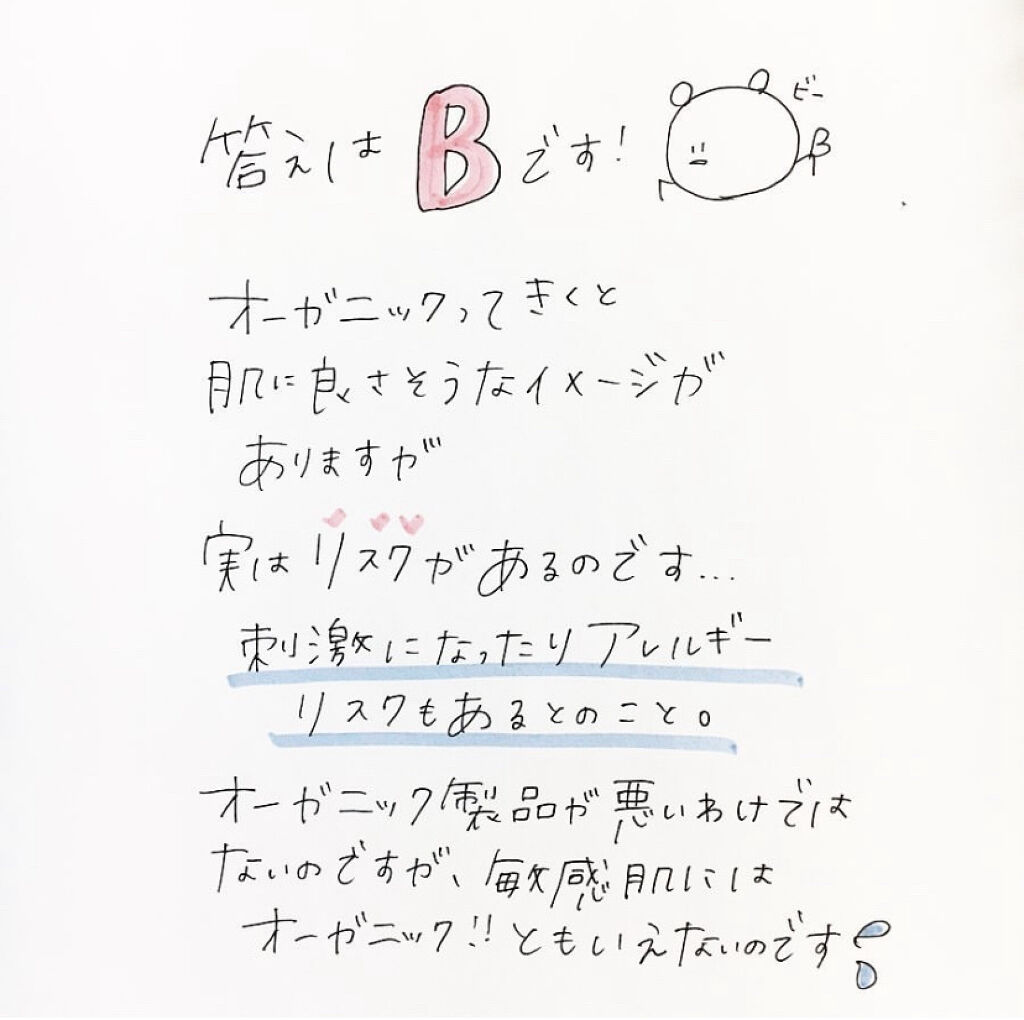 答えはBです!
ビー
B
オーガニックってきくと
肌に良さそうなイメージが
ありますが
実はリスクがあるのです...
刺激になったりアレルギー
リスクもあるとのこと。
オーガニック製品が悪いわけでは
ないのですが、敏感肌には
オーガニック!!ともいえないのです